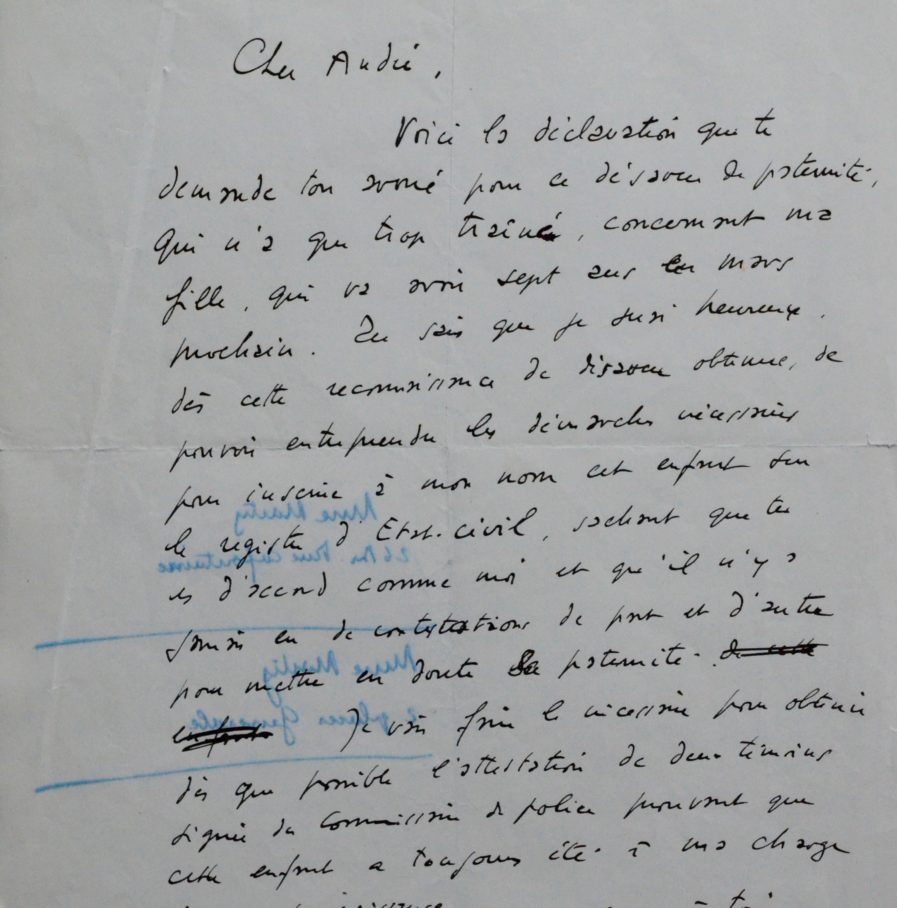 Cher André,
Voici la déclaration que te
demande ton avoué pour ce désaveu de paternité,
qui n'a que trop traîné, concernant ma
fille, qui va avoir sept ans en mars
prochain. Tu sais que je suis heureuse,
dès cette reconnaissance de désaveu obtenue, de
pouvoir entreprendre les démarches nécessaires
pour inscrire à mon nom cet enfant sur
le registre d'Etat-civil, sachant que tu
es d'accord comme moi et qu'il n'y a
jamais eu de contestations de part et d'autre
pour mettre en doute sa paternité. de cette
enfant Je vais faire le nécessaire pour obtenir
dès que possible l'attestation de deux témoins
signée du commissaire de police prouvant que
cette enfant a toujours été à ma charge